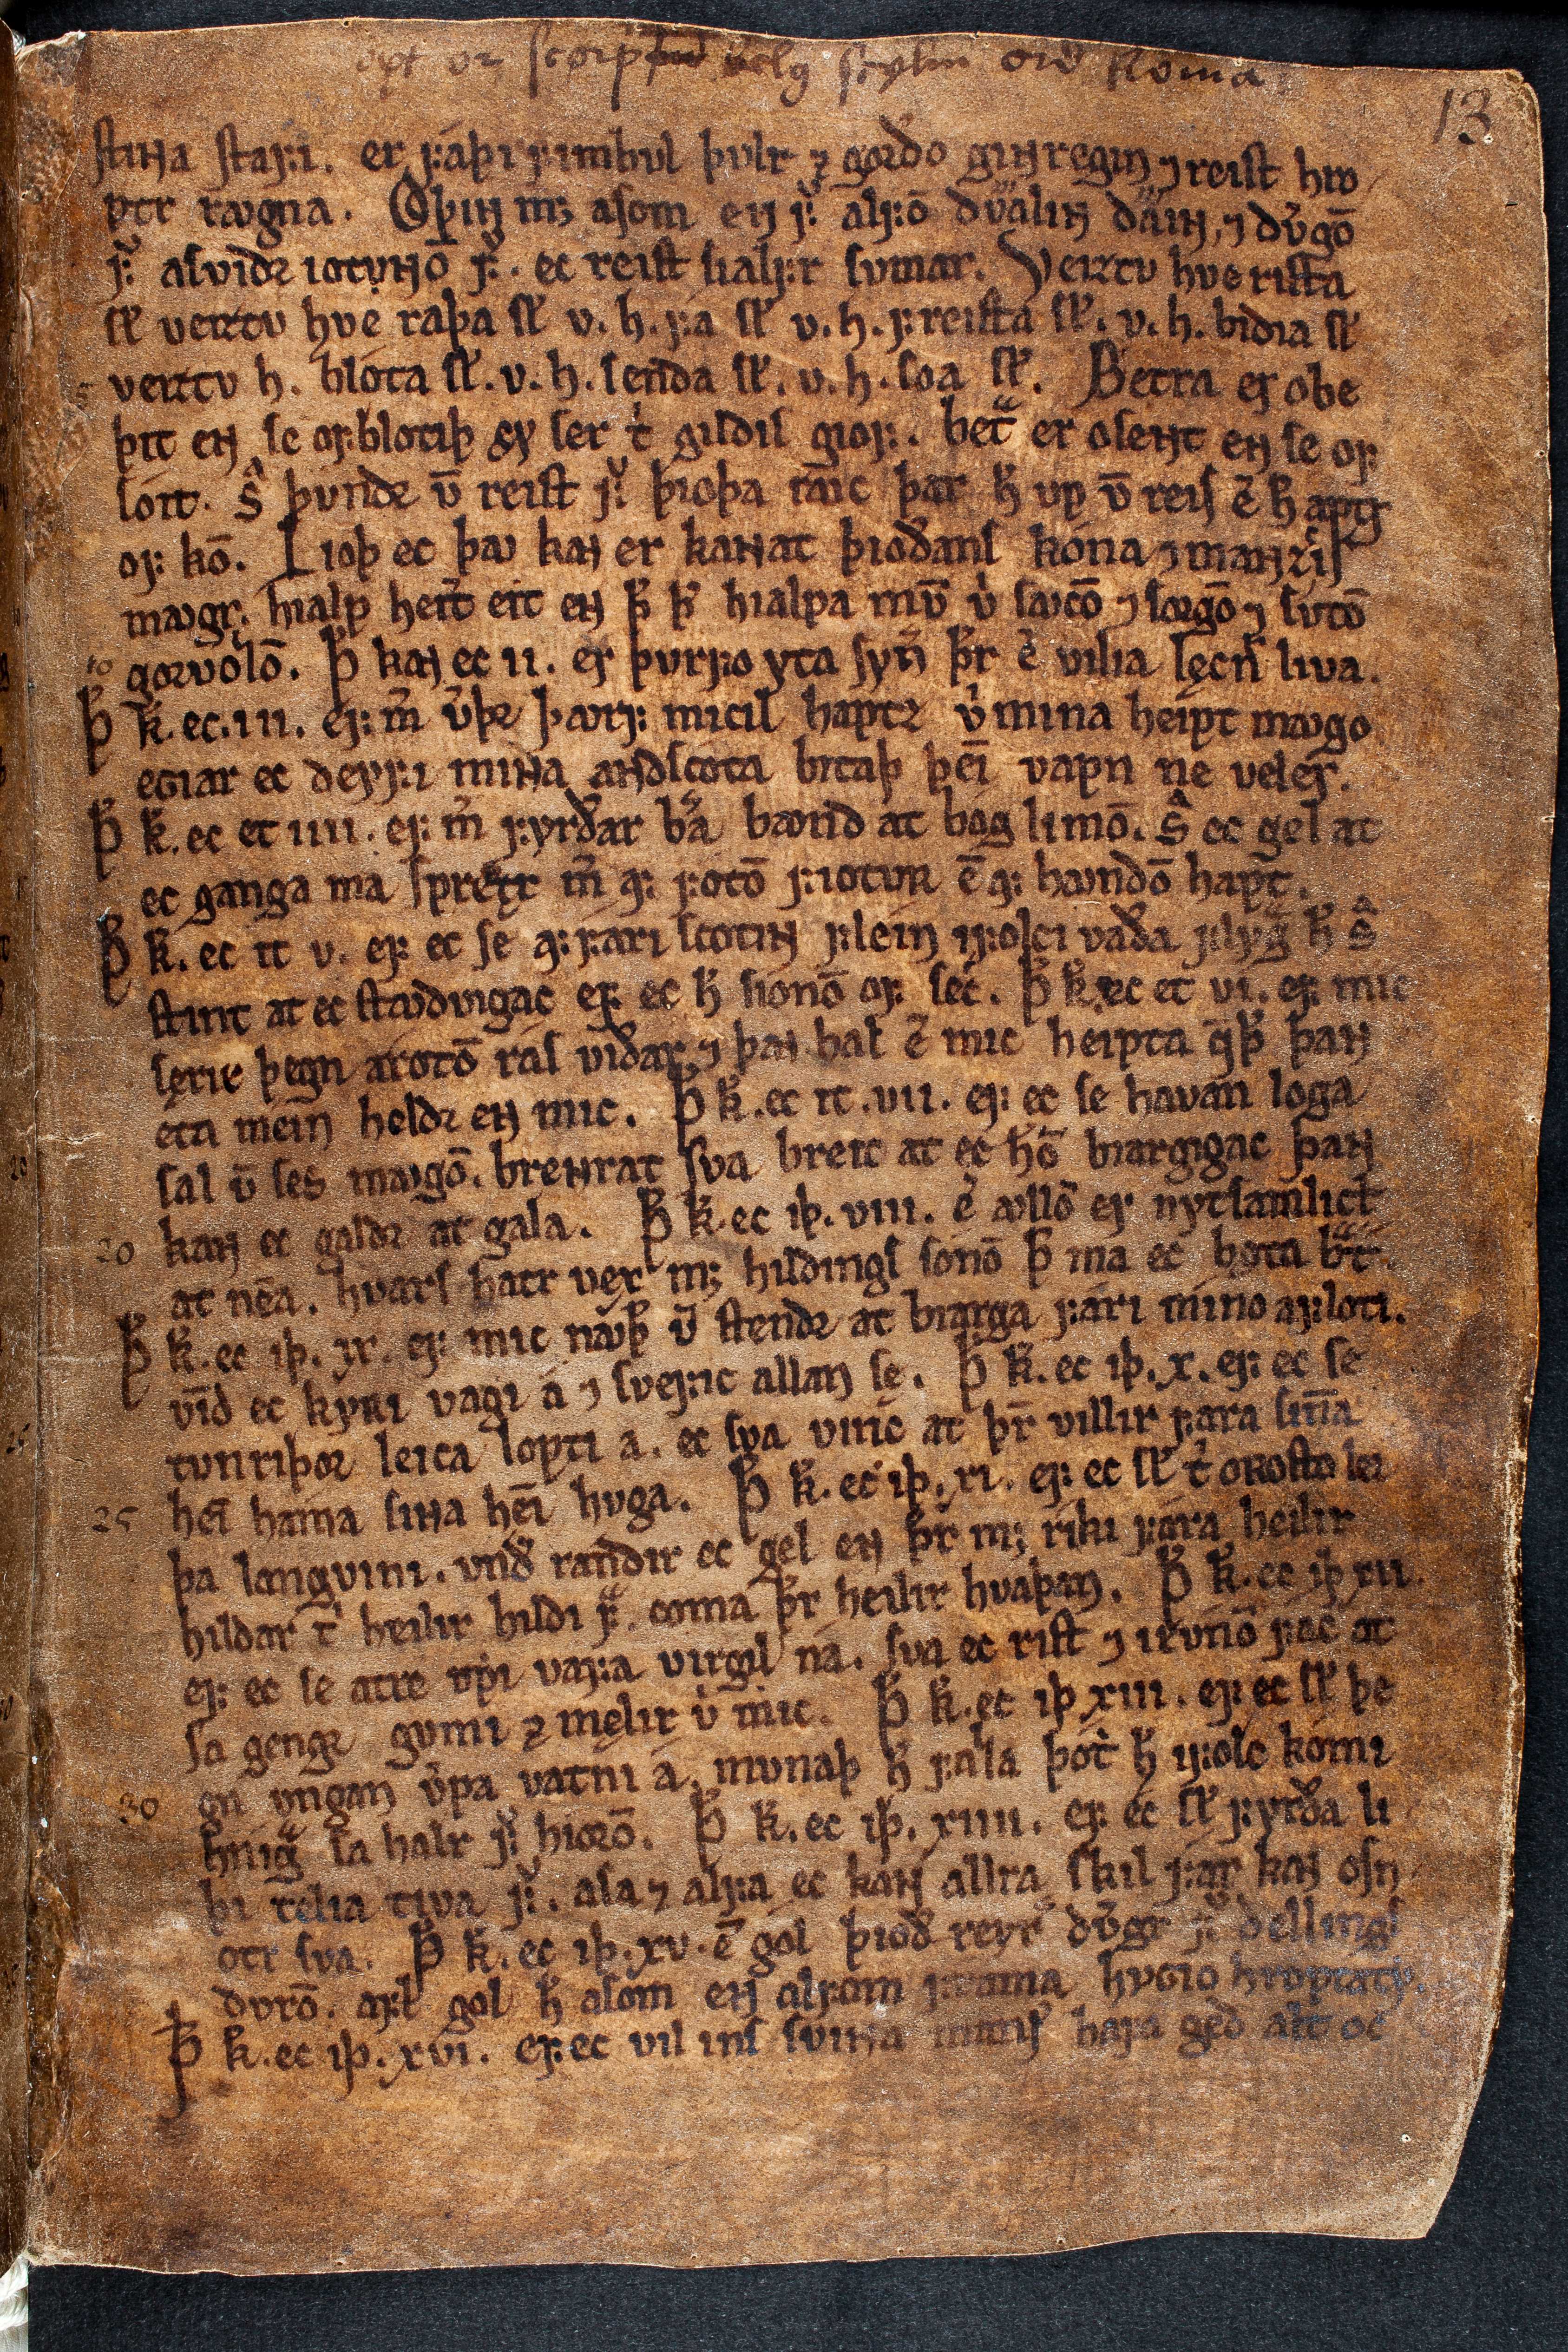 opt or scorpū belg scylin orð koma
13
stinna stafi. er fáþi fimbvl þvlr ⁊ gorðo ginregin ⁊ reist hꜹ
ptr rꜹgna. Oþinn m; asom en fͬ alfō dvalinn dáinn, ⁊ dv̓gō
fͬ asviðr iotvnnō fͬ. ec reist sialfr svmar. Veiztv hve rista
sl̄ veiztv hve raþa sl̄ v. h. fá sl̄ v. h. freista sl̄. v. h. biðia sl̄
5 veiztv h. blóta sl̄. v. h. senda sl̄. v. h. sóa sl̄. Betra er obe
þit en se ofblotiþ ey ser t̓ gildis giof. bet͛ er osent en se of
sóit. Ŝ þvndr v̄ reist fͬ þioþa rꜹc þar h̄ vp v̄ reis ē h̄ aptr
of kō. Lioþ ec þꜹ kan er kannat þioðans kona ⁊ mannzcis
mꜹgr. hialp heit͛ eitt en þ̄ þ̓ hialpa mv̄ v̓ sꜹcō ⁊ sorgō ⁊ svtō
10 gorvolō. Þ̄ kan ec ii. er þvrfo yta syn̄ þr̄ ē vilia lęcn̄ liva.
Þ̄ k̄. ec. iii. ef m̄ v̓þr þꜹrf micil haptz v̓ mina heipt mꜹgo
eGiar ec deyfi minna andscota bitaþ þeī vapn ne veler.
Þ̄ k̄. ec et iiii. ef m̄ fyrðar b͛a bꜹnd at bog limō. ŝ ec gel at
ec ganga ma sprettr m̄ af fotō fiotvr ē af hꜹndō hapt.
Þ̄ k̄. ec it v. ef ec se af fári scotinn flein ifolci vaða flyg͛ h̄ ŝ
stint at ec stꜹðvigac ef ec h̄ sionō of séc. Þ̄ k̄. ec et vi. ef mic
sęrir þegn arotō rás viðar ⁊ þan hal ē mic heipta q̄þ̓ þann
eta mein heldr en mic. Þ̄ k̄. ec it. vii. ef ec se hávan loga
sal v̄ ses mꜹgō. brennrat sva breit at ec hō biargigac þann
20 kan ec galdr at gala. Þ̄ k̄. ec iþ. viii. ē ꜹllō er nytsamlict
at nēa. hvars hatr vex m; hildings sonō þ̄ ma ec bǿta b͛t.
Þ̄ k̄. ec iþ. ix. ef mic nꜹþ v̄ stendr at biarga fári mino afloti.
vīd ec kyrri vagi á ⁊ svefic allan sę. Þ̄ k̄. ec iþ. x. ef ec se
tvnriþor leica lopti a. ec sva vinc at þr̄ villir fara sin̄a
25 heī háma sinna heī hvga. Þ̄ k̄. ec iþ. xi. ef ec sl̄ t̓ orosto lei
þa langvini. vnd͛ randir ec gel en þr̄ m; ríki fara heilir
hildar t̓ heilir hildi f͛. coma þr̄ heilir hvaþan. Þ̄ k̄. ec iþ xii.
ef ec se atre vpi vafa virgil ná. sva ec rist ⁊ irvnō fác at
sa gengr gvmi ⁊ męlir v̓ mic. Þ̄ k̄. ec iþ xiii. ef ec sl̄ þe
30 gn vngan v̓pa vatni á. mvnaþ h̄ falla þót̓ h̄ ifolc komi
hnig͛ sa halr fͬ hiorō. Þ̄ k̄. ec iþ. xiiii. ef ec sl̄ fyrða li
þi telia tiva fͬ. asa ⁊ alfa ec kann allra skil fár kan osn
otr sva. Þ̄ k̄. ec iþ. xv. ē gol þioð reyr͛ dv̓gr fͬ dellings
dvrō. afl gol h̄ asom en alfom frama hyGio hroptatý.
Þ̄ k̄. ec iþ. xvi. ef ec vil ins svinna mans hafa geð alt oc